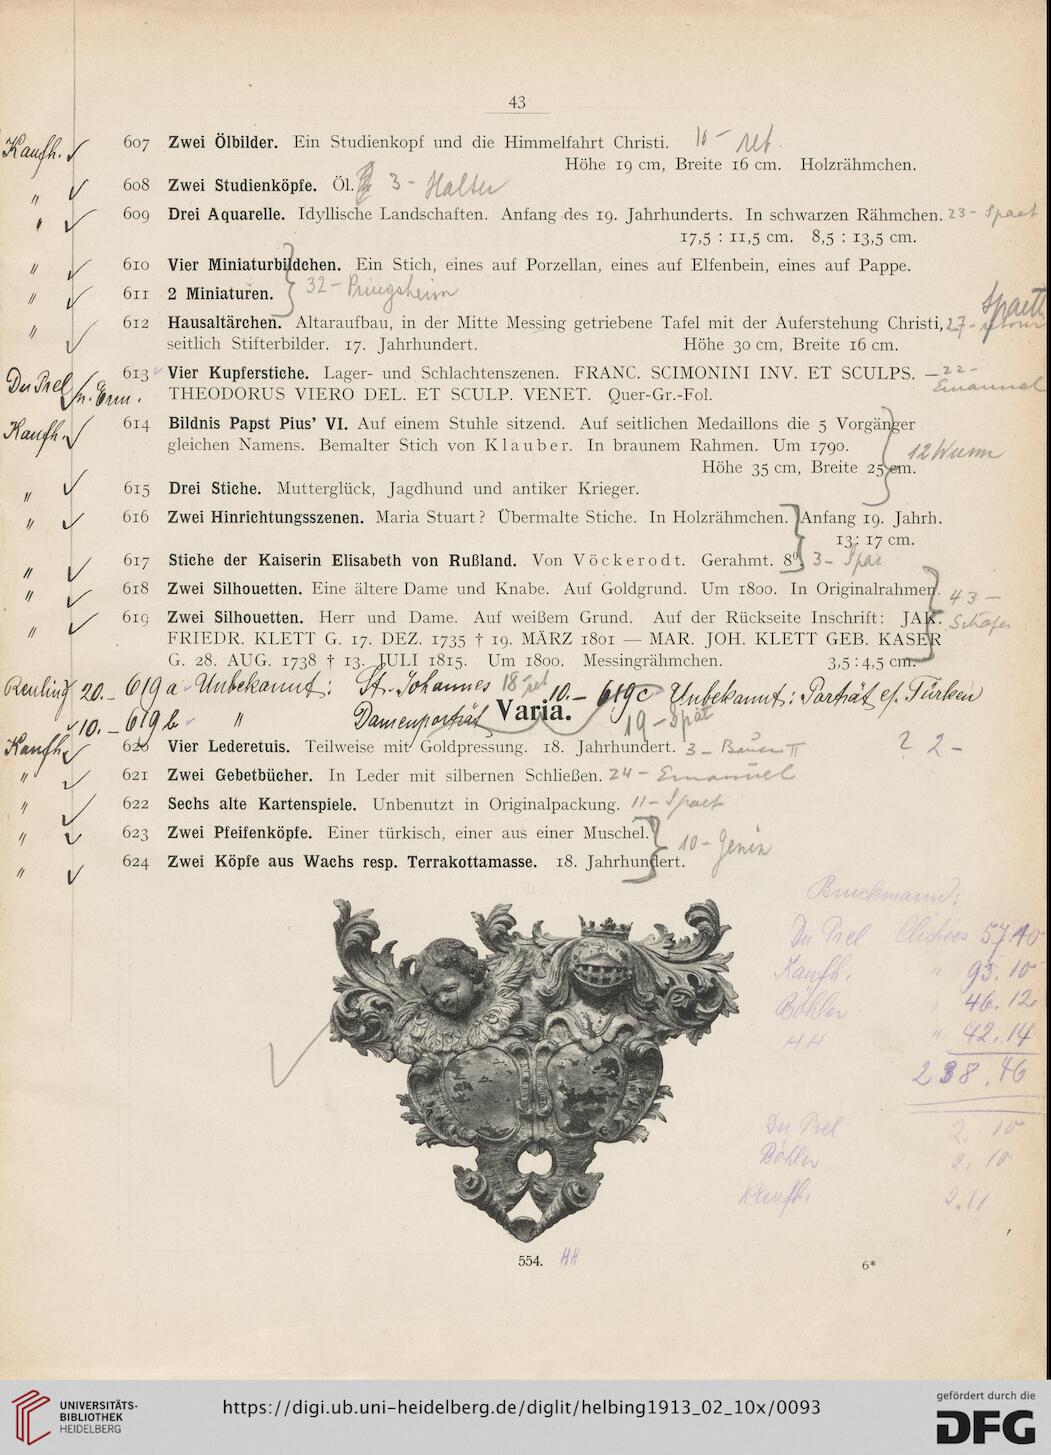 43
Kaufh. ✓ 607 Zwei Ölbilder. Ein Studienkopf und die Himmelfahrt Christi. 10 – ret.
Höhe 19 cm, Breite 16 cm. Holzrähmchen.
" ✓ 608 Zwei Studienköpfe. Öl. 3 – Halter
" ✓ 609 Drei Aquarelle. Idyllische Landschaften. Anfang des 19. Jahrhunderts. In schwarzen Rähmchen. 23 – Spaet
17,5 : 11,5 cm. 8,5 : 13,5 cm.
" ✓ 610 Vier Miniaturbildchen. Ein Stich, eines auf Porzellan, eines auf Elfenbein, eines auf Pappe.
" ✓ 611 2 Miniaturen. } 32 – Pringsheim
Spaeth
" ✓ 612 Hausaltärchen. Altaraufbau, in der Mitte Messing getriebene Tafel mit der Auferstehung Christi, 27 – retour
seitlich Stifterbilder. 17. Jahrhundert. Höhe 30 cm, Breite 16 cm.
Du Prel 613 Vier Kupferstiche. Lager- und Schlachtenszenen. FRANC. SCIMONINI INV. ET SCULPS. — 22 –
THEODORUS VIERO DEL. ET SCULP. VENET. Quer-Gr.-Fol. Emanuel
Kaufh. ✓ 614 Bildnis Papst Pius' VI. Auf einem Stuhle sitzend. Auf seitlichen Medaillons die 5 Vorgänger
gleichen Namens. Bemalter Stich von Klauber. In braunem Rahmen. Um 1790. } 12
Höhe 35 cm, Breite 25 cm.
" ✓ 615 Drei Stiche. Mutterglück, Jagdhund und antiker Krieger.
" ✓ 616 Zwei Hinrichtungsszenen. Maria Stuart? Übermalte Stiche. In Holzrähmchen. Anfang 19. Jahrh.
13 : 17 cm.
" ✓ 617 Stiche der Kaiserin Elisabeth von Rußland. Von Vöckerodt. Gerahmt. 8°. } 3 –
" ✓ 618 Zwei Silhouetten. Eine ältere Dame und Knabe. Auf Goldgrund. Um 1800. In Originalrahmen. } 43 –
" ✓ 619 Zwei Silhouetten. Herr und Dame. Auf weißem Grund. Auf der Rückseite Inschrift: JAK. Schäfer
FRIEDR. KLETT G. 17. DEZ. 1735 † 19. MÄRZ 1801 — MAR. JOH. KLETT GEB. KASER
G. 28. AUG. 1738 † 13. JULI 1815. Um 1800. Messingrähmchen. 3,5 : 4,5 cm.
20. – 619a Unbekannt: St. Johannes 18 ret 10. – 619c Unbekannt: Porträt e/. Türken
10. – 619b " Damenporträt 19 – Spät
Varia.
Kaufh. ✓ 620 Vier Lederetuis. Teilweise mit Goldpressung. 18. Jahrhundert. 3 – Bauer II ? 2 –
" ✓ 621 Zwei Gebetbücher. In Leder mit silbernen Schließen. 24 – Emanuel
" ✓ 622 Sechs alte Kartenspiele. Unbenutzt in Originalpackung. 11 – Spaet
" ✓ 623 Zwei Pfeifenköpfe. Einer türkisch, einer aus einer Muschel. } 10 – Jenin
" ✓ 624 Zwei Köpfe aus Wachs resp. Terrakottamasse. 18. Jahrhundert.
Bruckmann:
Du Prel Clichées 57.10
Kaufh. " 93.10
Böhler 46.12
HH " 42.14
238.46
Du Prel 2.10
Böhler 2.10
Kaufh. 2.11
554. HH
6*
UNIVERSITÄTS-
BIBLIOTHEK
HEIDELBERG
https://digi.ub.uni-heidelberg.de/diglit/helbing1913_02_10x/0093
gefördert durch die
DFG